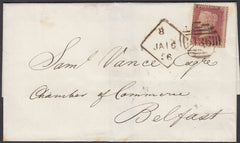 8
JA 16
56
Saml. Vance Esqre
Chamber of Commerce
Belfast